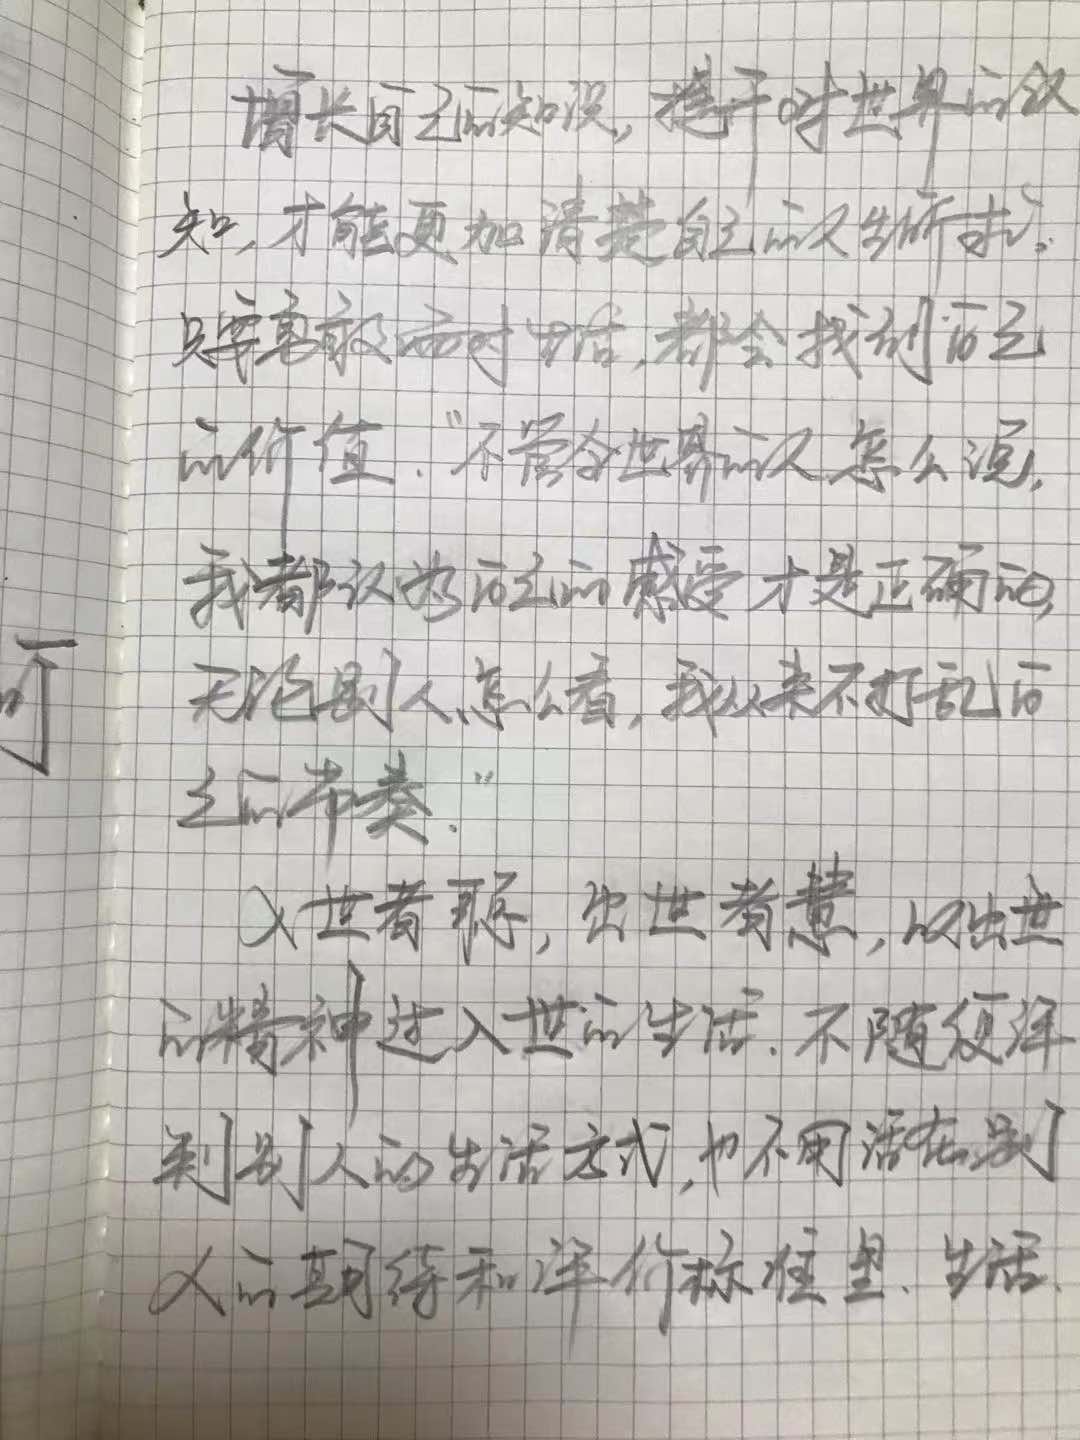 增长自己的知识,提升对世界的认
知,才能更加清楚自己的人生所求。
只要勇敢面对生活,都会找到自己
的价值.“不管全世界的人怎么说,
我都认为自己的感受才是正确的,
无论别人怎么看,我从来不打乱自
己的节奏.”
入世者聪,出世者慧,以出世
的精神过入世的生活.不随便评
判别人的生活方式,也不用活在别
人的期待和评价标准里.生活.